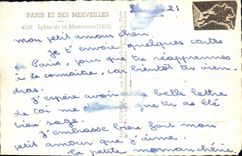 PARIS ET SES MERVEILLES
Église de la Madeleine
21
mon petit amour chéri,
Je t'envoie quelques cartes
de Paris, pour que tu réapprennes
à le connaître, car bientôt tu viendras.
J'espère avoir une belle lettre
de toi me que tu as été
bien sage.
J'embrasse bien fort mon
petit amour que j'aime.
ta petite maman chérie.